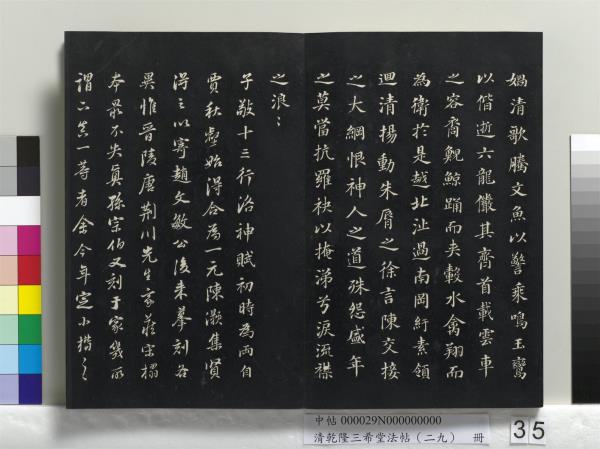 媧清歌騰文魚以警乘鳴玉鸞
以偕逝六龍儼其齊首載雲車
之容裔鯢鯨踊而夾轂水禽翔而
為衛於是越北沚過南岡紆素領
迴清揚動朱脣之徐言陳交接
之大綱恨神人之道殊怨盛年
之莫當抗羅袂以掩涕兮淚流襟
之浪〻
子敬十三行洛神賦初時為兩自
賈秋壑始得合為一元陳灝集賢
得之以寄趙文敏公後来摹刻各
異惟晉陵唐荊川先生家藏宋搨
本最不失真孫宗伯又刻于家幾所
謂下真一等者余今年定小楷
中帖 000029N000000000
清乾隆三希堂法帖（二九） 冊
35